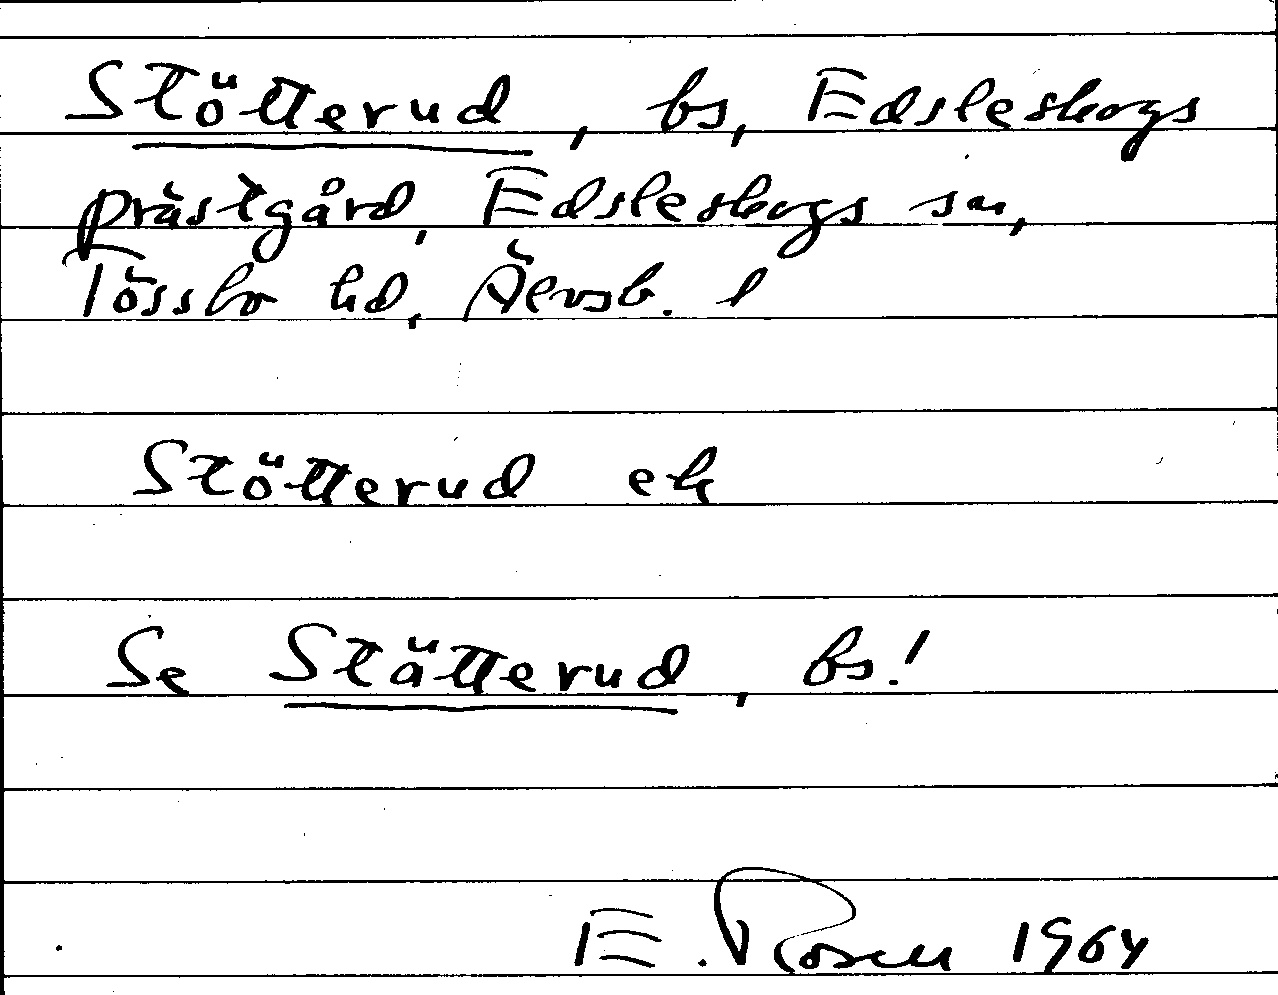 Stötterud, bs, Edsleskogs
prästgård, Edsleskogs sn,
Tössbo hd, Älvsb. l
Stötterud ek
Se Stätterud, bs!
E. Rosell 1964